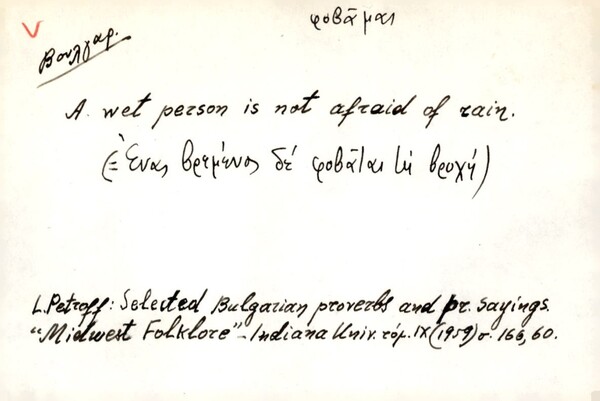 V
φοβᾶμαι
Βουλγαρ.
A wet person is not afraid of rain.
(= Ἕνας βρεμένος δέ φοβᾶται τή βροχή)
L. Petroff: Selected Bulgarian proverbs and pr. sayings.
"Midwest Folklore" - Indiana Univ. τόμ. IX (1959) σ. 166, 60.